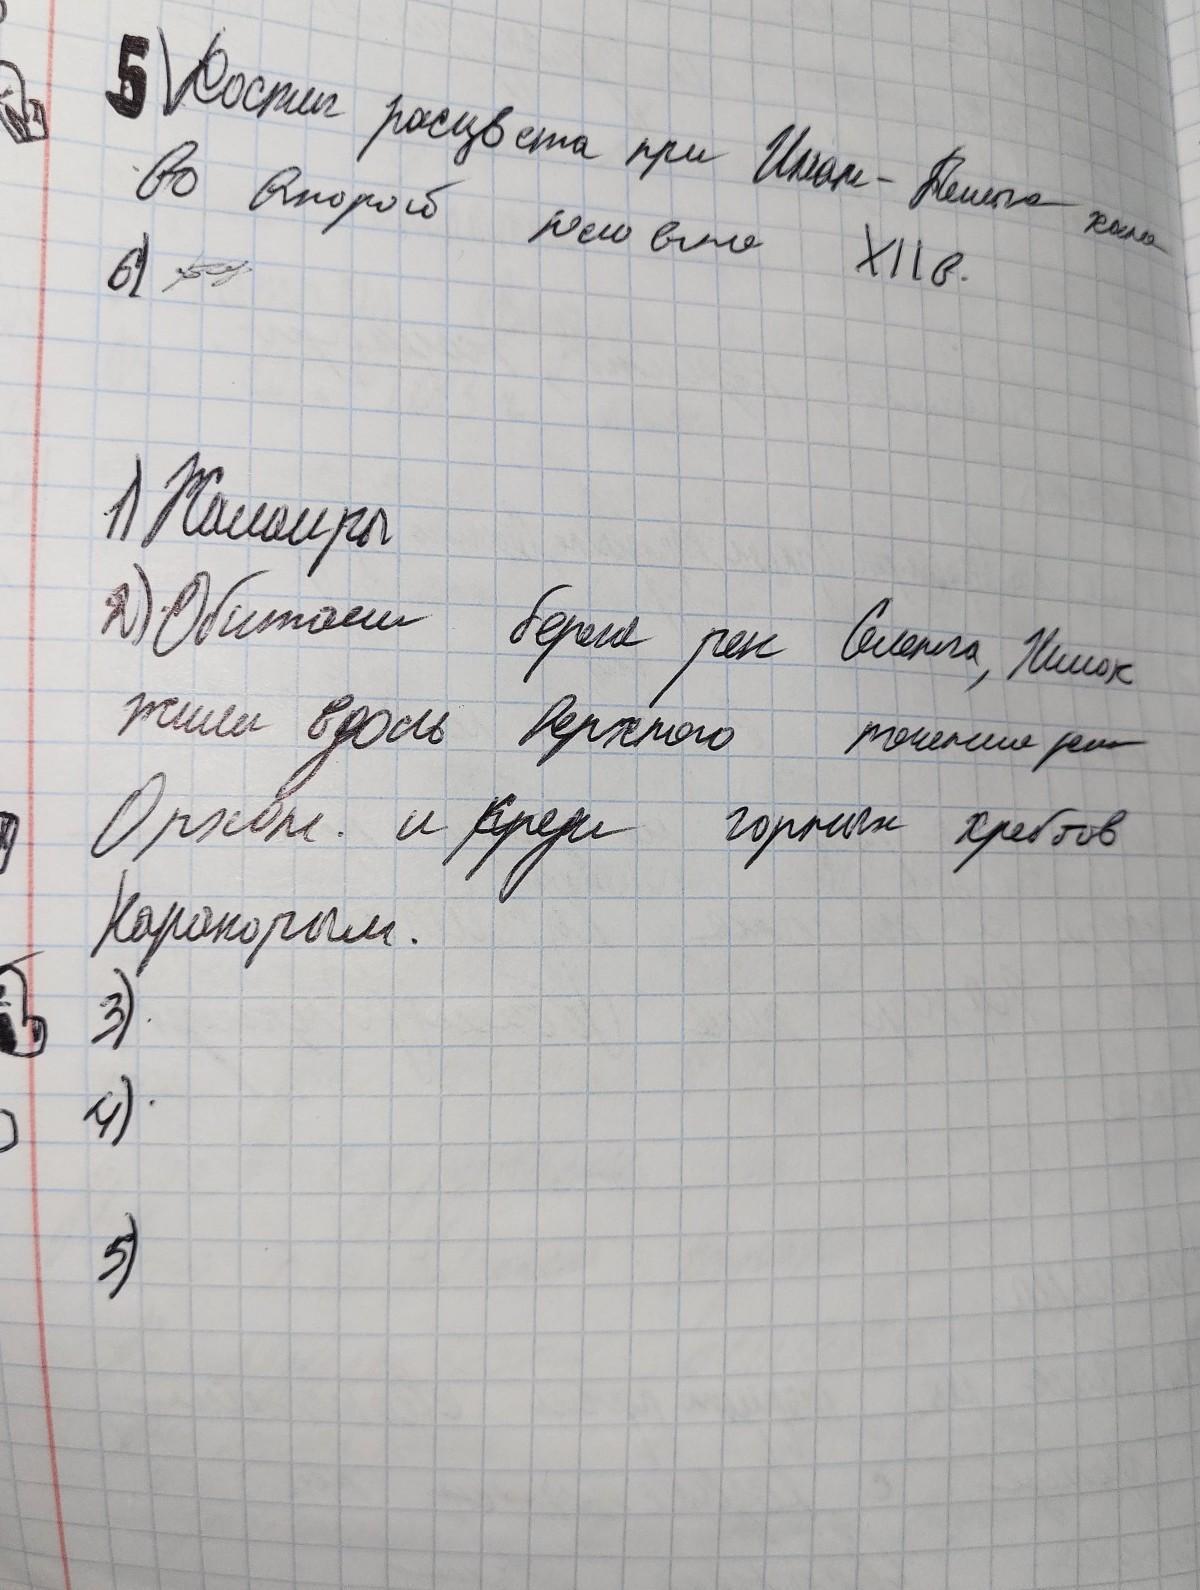 5) Достиг расцвета при Инан-Бильге хана
Во второй половине XII в.
6)
1) Жалаиры
2) Обитали берега рек Селенга, Хилок
жили вдоль верхнего течения реки
Орхон. и среди горных хребтов
Каракорым.
3).
4).
5)